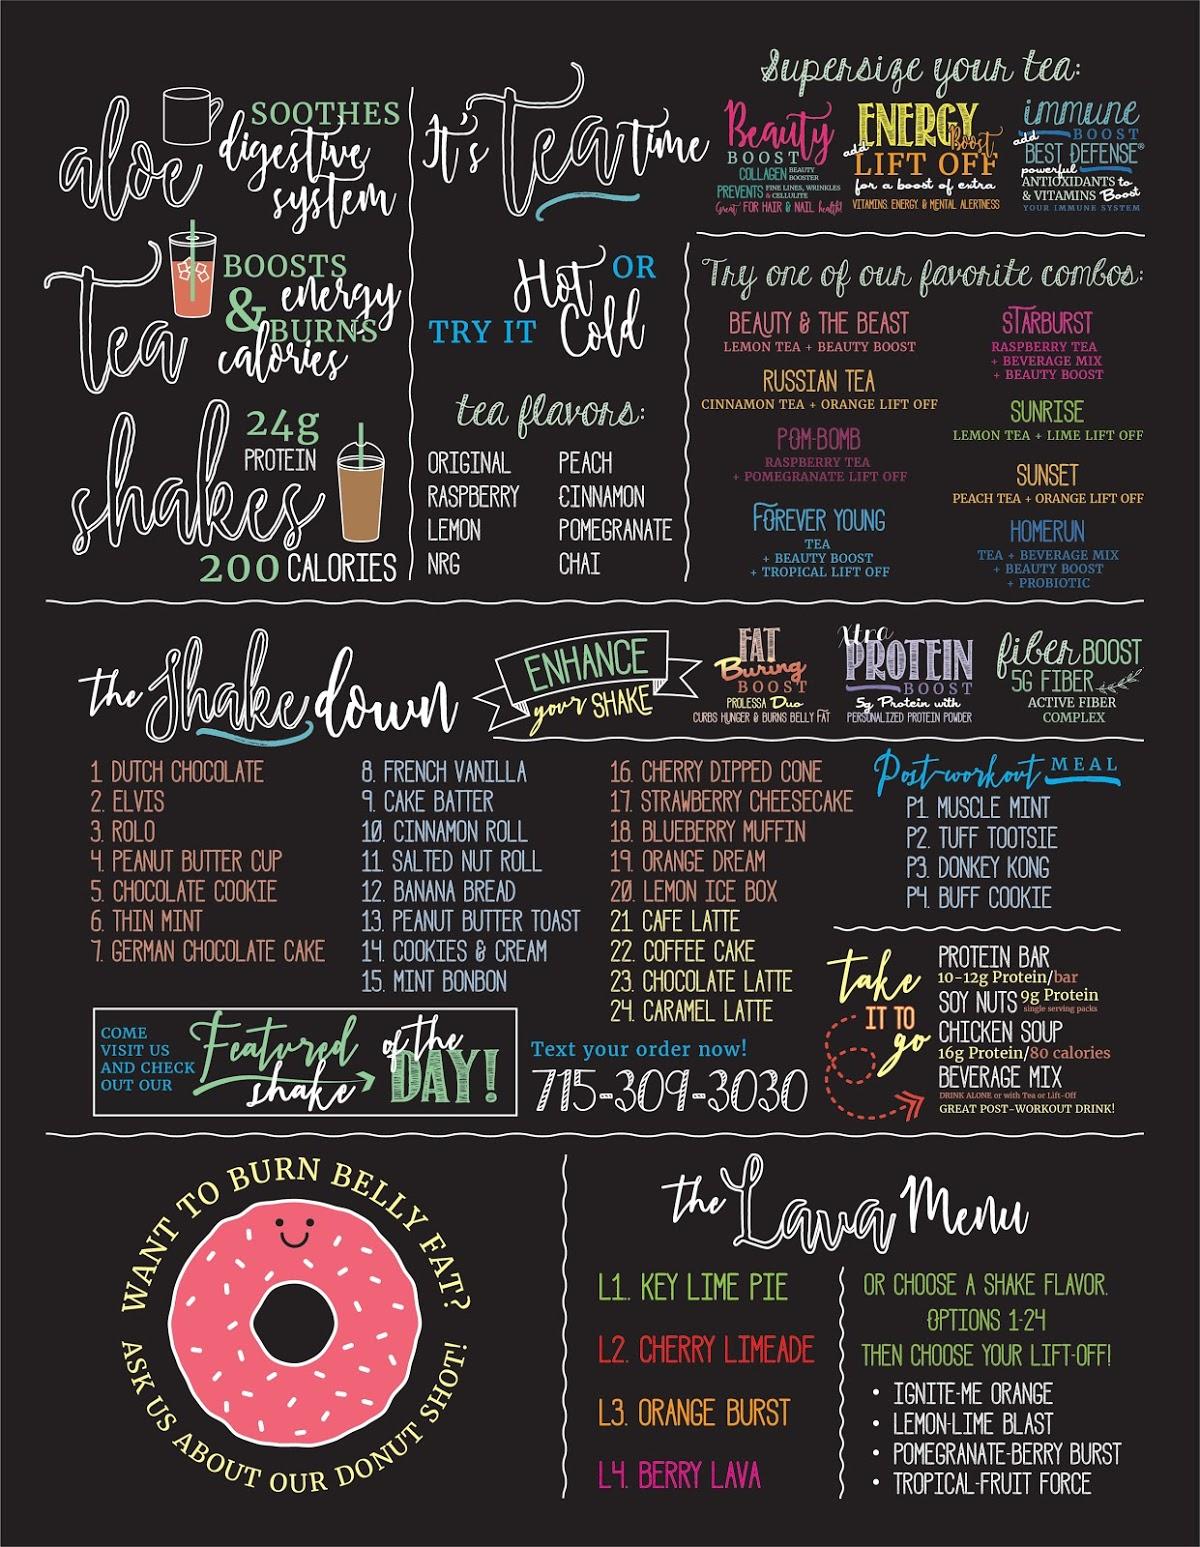 aloe
SOOTHES
digestive
system
Tea
BOOSTS
& energy
BURNS
calories
shakes
24g
PROTEIN
200 CALORIES
It's tea time
TRY IT Hot OR
Cold
tea flavors:
ORIGINAL
RASPBERRY
LEMON
NRG
PEACH
CINNAMON
POMEGRANATE
CHAI
Supersize your tea:
Beauty
BOOST
COLLAGEN BEAUTY BOOSTER
PREVENTS FINE LINES, WRINKLES & CELLULITE
Great FOR HAIR & NAIL health!
ENERGY
Boost
add LIFT OFF
for a boost of extra
VITAMINS, ENERGY, & MENTAL ALERTNESS
immune
BOOST
add BEST DEFENSE®
powerful
ANTIOXIDANTS to
& VITAMINS Boost
YOUR IMMUNE SYSTEM
Try one of our favorite combos:
BEAUTY & THE BEAST
LEMON TEA + BEAUTY BOOST
RUSSIAN TEA
CINNAMON TEA + ORANGE LIFT OFF
POM-BOMB
RASPBERRY TEA
+ POMEGRANATE LIFT OFF
FOREVER YOUNG
TEA
+ BEAUTY BOOST
+ TROPICAL LIFT OFF
STARBURST
RASPBERRY TEA
+ BEVERAGE MIX
+ BEAUTY BOOST
SUNRISE
LEMON TEA + LIME LIFT OFF
SUNSET
PEACH TEA + ORANGE LIFT OFF
HOMERUN
TEA + BEVERAGE MIX
+ BEAUTY BOOST
+ PROBIOTIC
the Shake down
ENHANCE
your SHAKE
FAT
Buring
BOOST
PROLESSA Duo
CURBS HUNGER & BURNS BELLY FAT
Xtra
PROTEIN
BOOST
5g Protein with
PERSONALIZED PROTEIN POWDER
fiber BOOST
5G FIBER
ACTIVE FIBER
COMPLEX
1 DUTCH CHOCOLATE
2. ELVIS
3. ROLO
4. PEANUT BUTTER CUP
5. CHOCOLATE COOKIE
6. THIN MINT
7. GERMAN CHOCOLATE CAKE
8. FRENCH VANILLA
9. CAKE BATTER
10. CINNAMON ROLL
11. SALTED NUT ROLL
12. BANANA BREAD
13. PEANUT BUTTER TOAST
14. COOKIES & CREAM
15. MINT BONBON
16. CHERRY DIPPED CONE
17. STRAWBERRY CHEESECAKE
18. BLUEBERRY MUFFIN
19. ORANGE DREAM
20. LEMON ICE BOX
21. CAFE LATTE
22. COFFEE CAKE
23. CHOCOLATE LATTE
24. CARAMEL LATTE
Post-workout MEAL
P1. MUSCLE MINT
P2. TUFF TOOTSIE
P3. DONKEY KONG
P4. BUFF COOKIE
take
IT TO
go
PROTEIN BAR
10-12g Protein/bar
SOY NUTS 9g Protein
single serving packs
CHICKEN SOUP
16g Protein/80 calories
BEVERAGE MIX
DRINK ALONE or with Tea or Lift-Off
GREAT POST-WORKOUT DRINK!
COME
VISIT US
AND CHECK
OUT OUR
Featured
shake
of the
DAY!
Text your order now!
715-309-3030
WANT TO BURN BELLY FAT?
ASK US ABOUT OUR DONUT SHOT!
the Lava Menu
L1. KEY LIME PIE
L2. CHERRY LIMEADE
L3. ORANGE BURST
L4. BERRY LAVA
OR CHOOSE A SHAKE FLAVOR.
OPTIONS 1-24
THEN CHOOSE YOUR LIFT-OFF!
• IGNITE-ME ORANGE
• LEMON-LIME BLAST
• POMEGRANATE-BERRY BURST
• TROPICAL-FRUIT FORCE